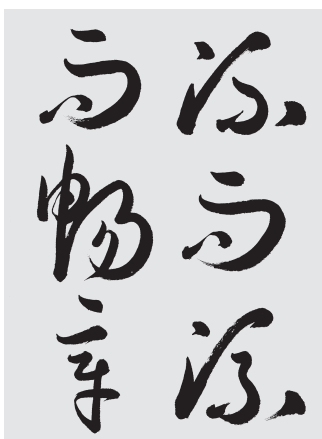 流而流
而暢章